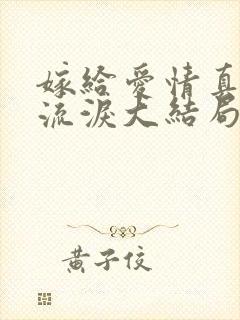 嫁給愛情真
流淚大結局
黃子佼